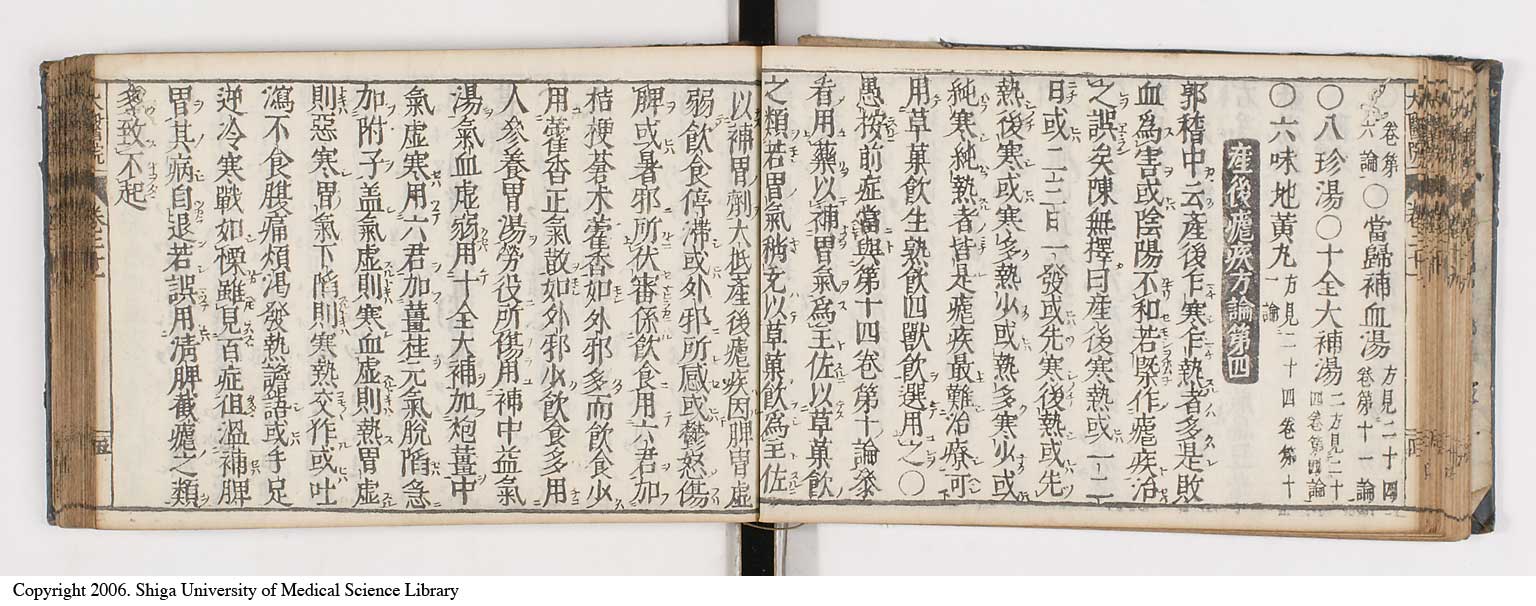 卷第六論〇當歸補血湯方見二十四卷第十一論
〇八珍湯〇十全大補湯二方見二十四卷第四論
〇六味地黄丸方見二十四卷第十一論
産後瘧疾方論第四
郭稽中云産後乍寒乍熱者多是敗
血爲害或陰陽不和若緊作瘧疾治
之誤矣陳無擇曰産後寒熱或一二
日或二三日一發或先寒後熱或先
熱後寒或寒多熱少或熱多寒少或
純寒純熱者皆是瘧疾最難治療可
用草菓飲生熟飲四獸飲選用之〇
愚按前症當與第十四卷第十論叅
看用藥以補胃氣爲主佐以草菓飲
之類若胃氣稍充以草菓飲爲主佐
以補胃劑大抵産後瘧疾因脾胃虚
弱飲食停滯或外邪所感或鬱怒傷
脾或暑邪所伏審係飲食用六君加
桔梗蒼木藿香如外邪多而飲食少
用藿香正氣散如外邪少飲食多用
人參養胃湯勞役所傷用補中益氣
湯氣血虚弱用十全大補加炮薑中
氣虚寒用六君加薑桂元氣脫陷急
加附子盖氣虚則寒血虚則熱胃虚
則惡寒胃氣下陷則寒熱交作或吐
瀉不食腹痛煩渇發熱譫語或手足
逆冷寒戰如慄雖見百症但温補脾
胃其病自退若誤用清脾截瘧之類
多致不起
Copyright 2006. Shiga University of Medical Science Library